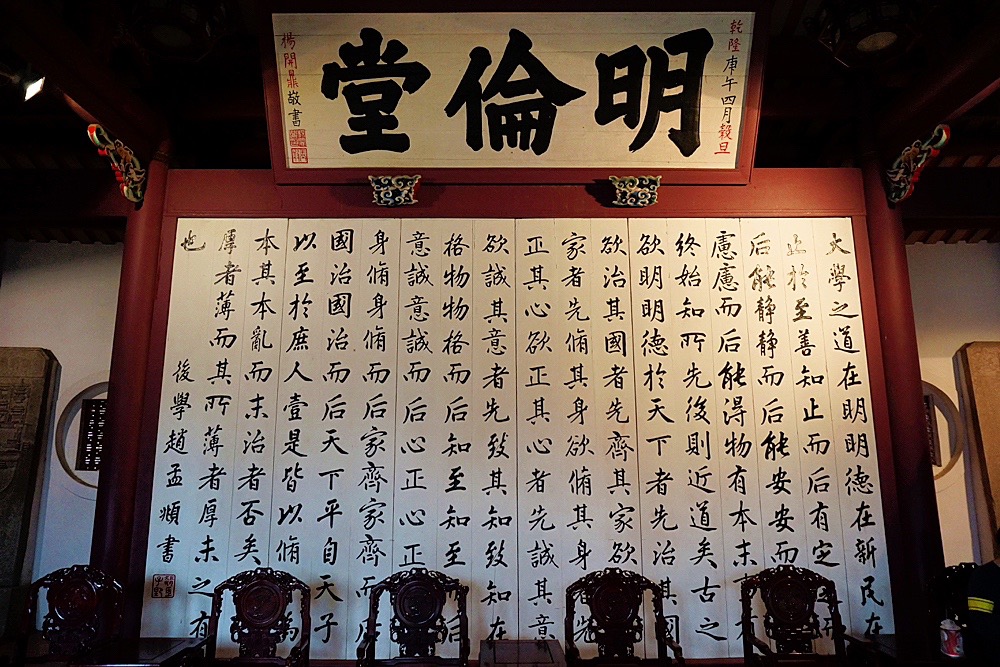 乾隆庚午四月穀旦
明倫堂
楊開鼎敬書
大學之道在明明德在新民在
止於至善知止而后有定
后能静静而后能安安而
慮慮而后能得物有本末事有
終始知所先後則近道矣古之
欲明明德於天下者先治其國
欲治其國者先齊其家欲
家者先脩其身欲脩其身者先
正其心欲正其心者先誠其意
欲誠其意者先致其知致知在
格物物格而后知至知至而后
意誠意誠而后心正心正
身脩身脩而后家齊家齊而后
國治國治而后天下平自天子
以至於庶人壹是皆以脩為
本其本亂而末治者否矣
厚者薄而其所薄者厚未之有
也
後學趙孟頫書